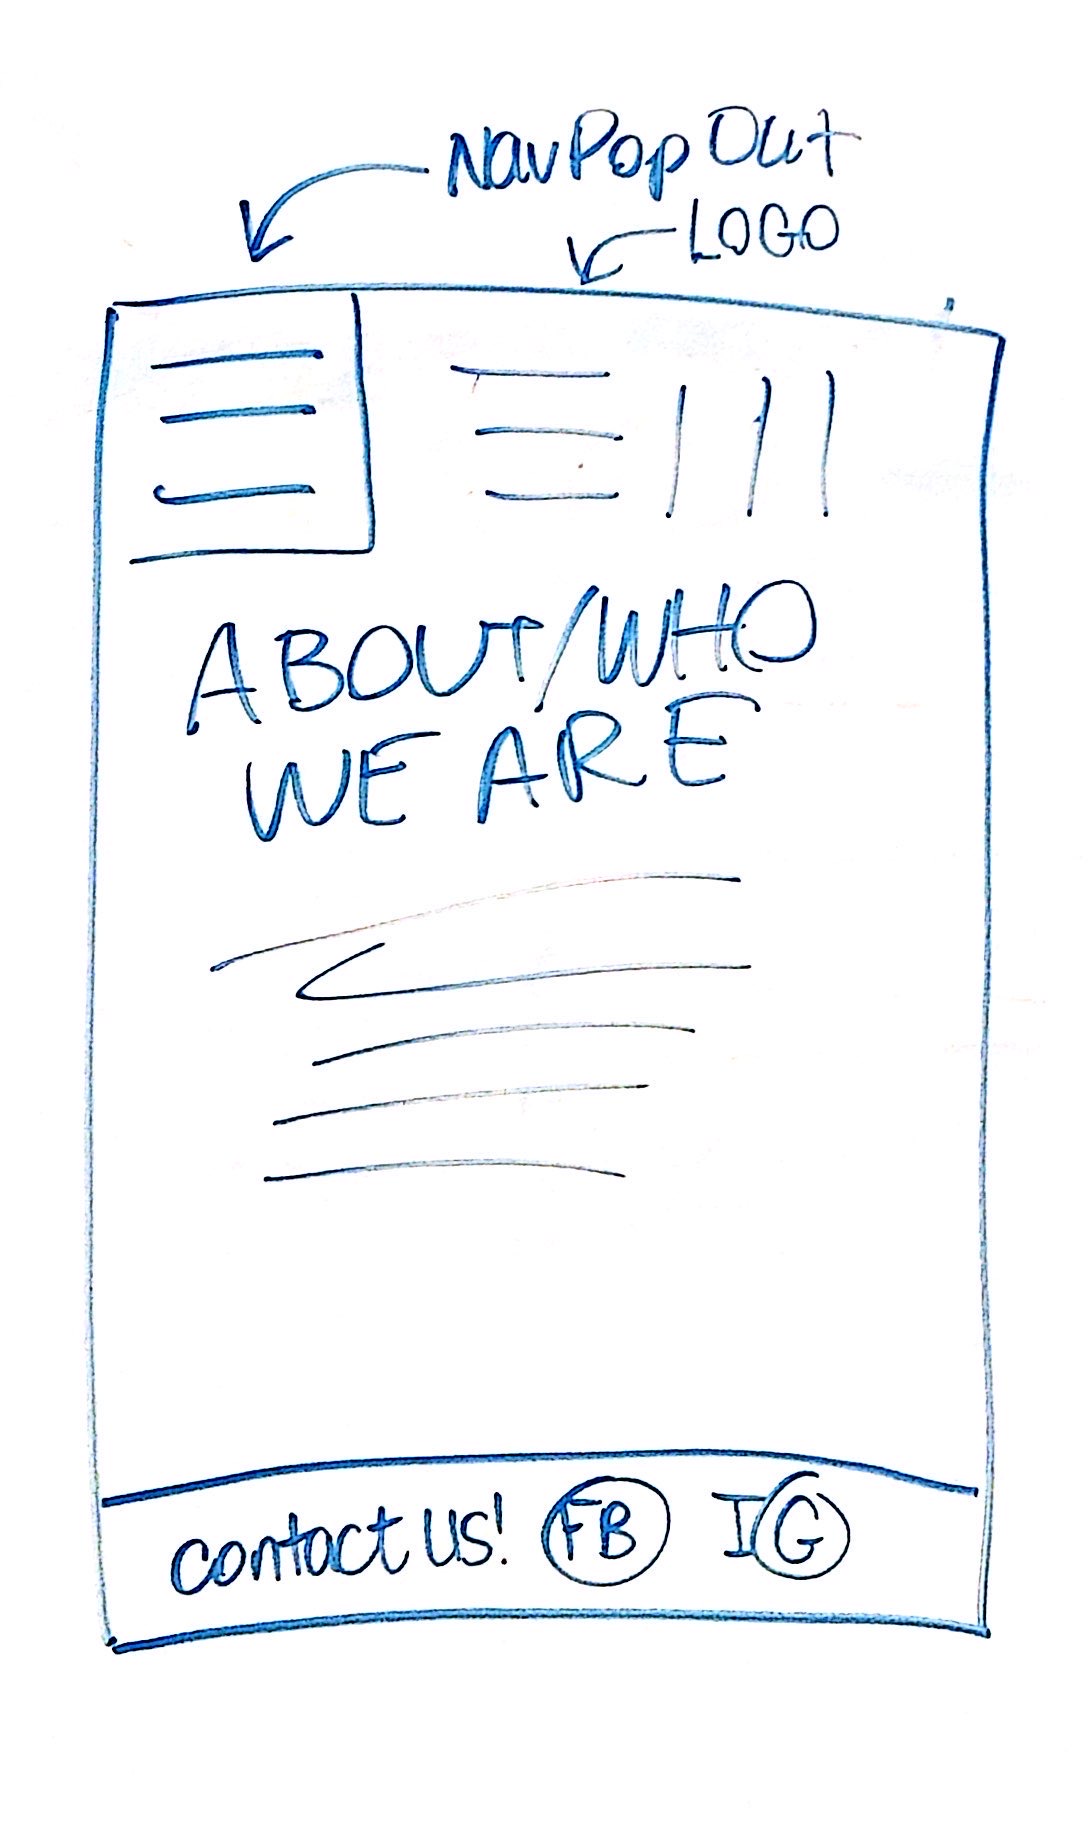 Nav Pop Out
LOGO
ABOUT/WHO
WE ARE
contact us! FB IG